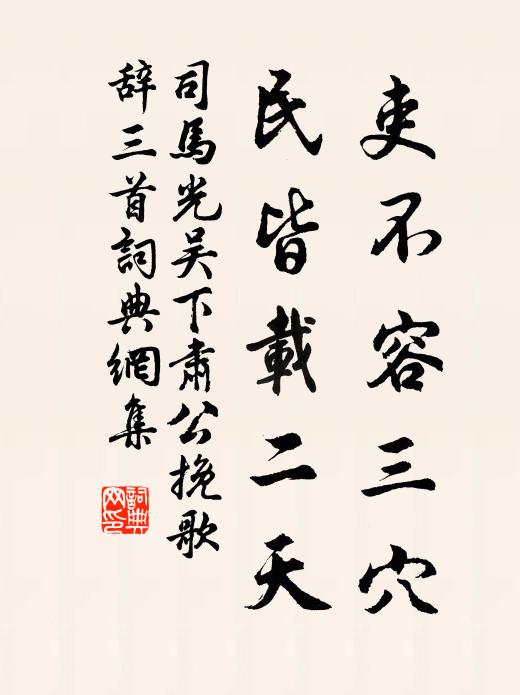 吏不容三穴
民皆載二天
司馬光吴下肅公挽歌
辞三首詞典網集
詞典网印